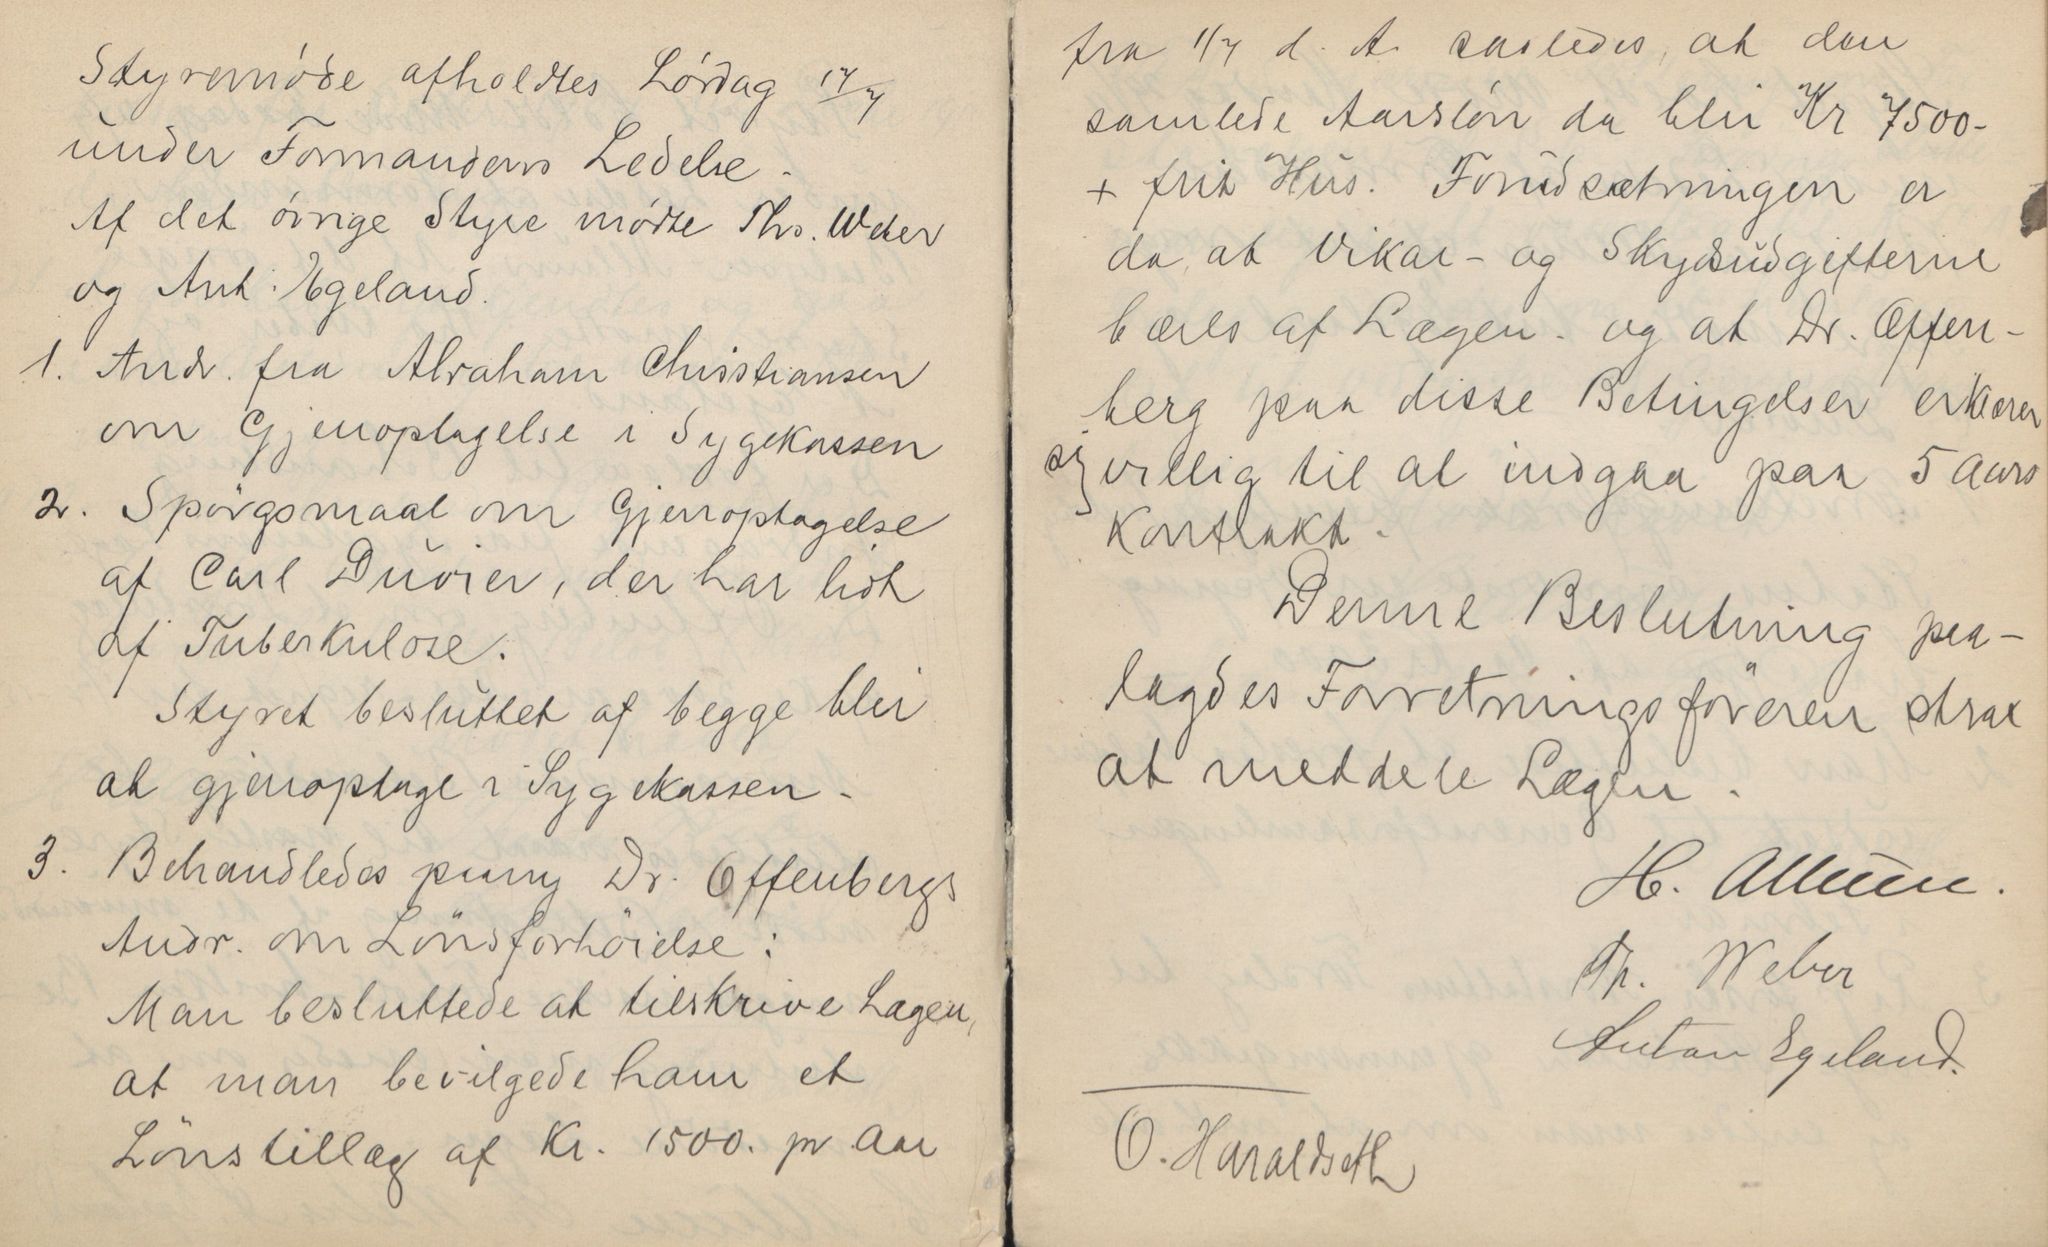 Styremöde afholdtes Lördag 17/7
under Formandens Ledelse.
Af det övrige Styre mödte Ths. Weber
og Ant: Egeland.
1. Andr. fra Abraham Christiansen
om Gjenoptagelse i Sygekassen
2. Spörgsmaal om Gjenoptagelse
af Carl Duvier, der har lidt
af Tuberkulose.
Styret besluttet af begge blir
at gjenoptage i Sygekassen.
3. Behandledes paany Dr. Offenbergs
Andr. om Lönsforhöielse:
Man besluttede at tilskrive Lægen,
at man bevilgede ham et
Lönstillæg af Kr. 1500. pr Aar
fra 1/7 d. A. saaledes, at den
samlede Aarslön da blir Kr 7500-
+ frit Hus. Forudsætningen er
da, at Vikar- og Skydsudgifterne
bæres af Lægen. og at Dr. Offen-
berg paa disse Betingelser erklærer
sig villig til at indgaa paa 5 Aars
Kontrakt.
Denne Beslutning paa-
lagdes Forretningsföreren strax
at meddele Lægen.
H.
Th. Weber
Anton Egeland.
O. Haraldseth